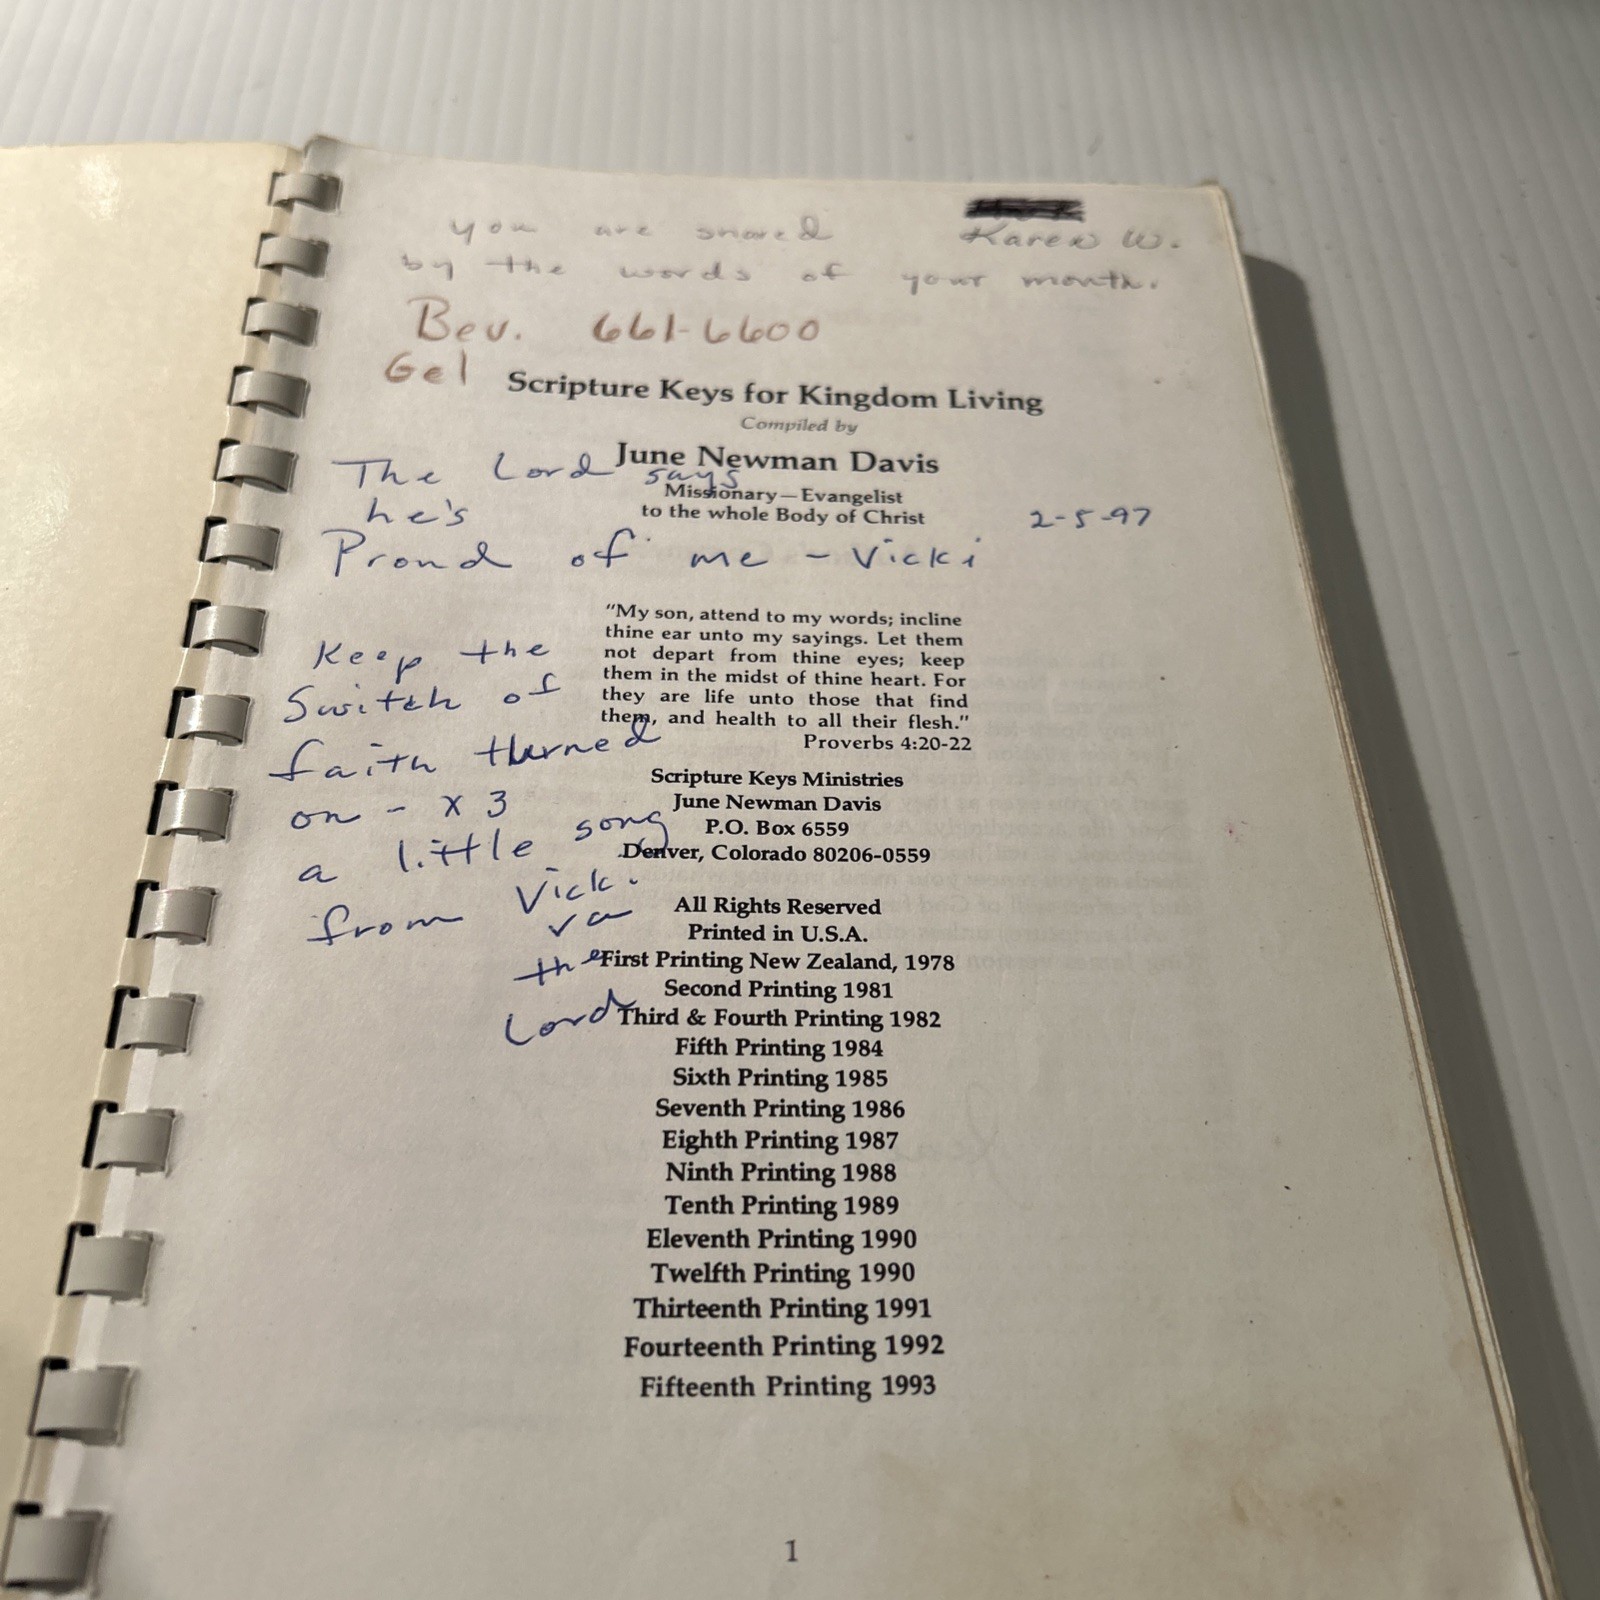 Karen W.
you are snared
by the words of your mouth.
Bev. 661-6600
Gel
Scripture Keys for Kingdom Living
Compiled by
June Newman Davis
Missionary—Evangelist
to the whole Body of Christ
2-5-97
The Lord says
he's
Proud of me - Vicki
"My son, attend to my words; incline
thine ear unto my sayings. Let them
not depart from thine eyes; keep
them in the midst of thine heart. For
they are life unto those that find
them, and health to all their flesh."
Proverbs 4:20-22
Keep the
Switch of
faith turned
on - x 3
a little song
from Vicki
the
Lord
Scripture Keys Ministries
June Newman Davis
P.O. Box 6559
Denver, Colorado 80206-0559
All Rights Reserved
Printed in U.S.A.
First Printing New Zealand, 1978
Second Printing 1981
Third & Fourth Printing 1982
Fifth Printing 1984
Sixth Printing 1985
Seventh Printing 1986
Eighth Printing 1987
Ninth Printing 1988
Tenth Printing 1989
Eleventh Printing 1990
Twelfth Printing 1990
Thirteenth Printing 1991
Fourteenth Printing 1992
Fifteenth Printing 1993
1